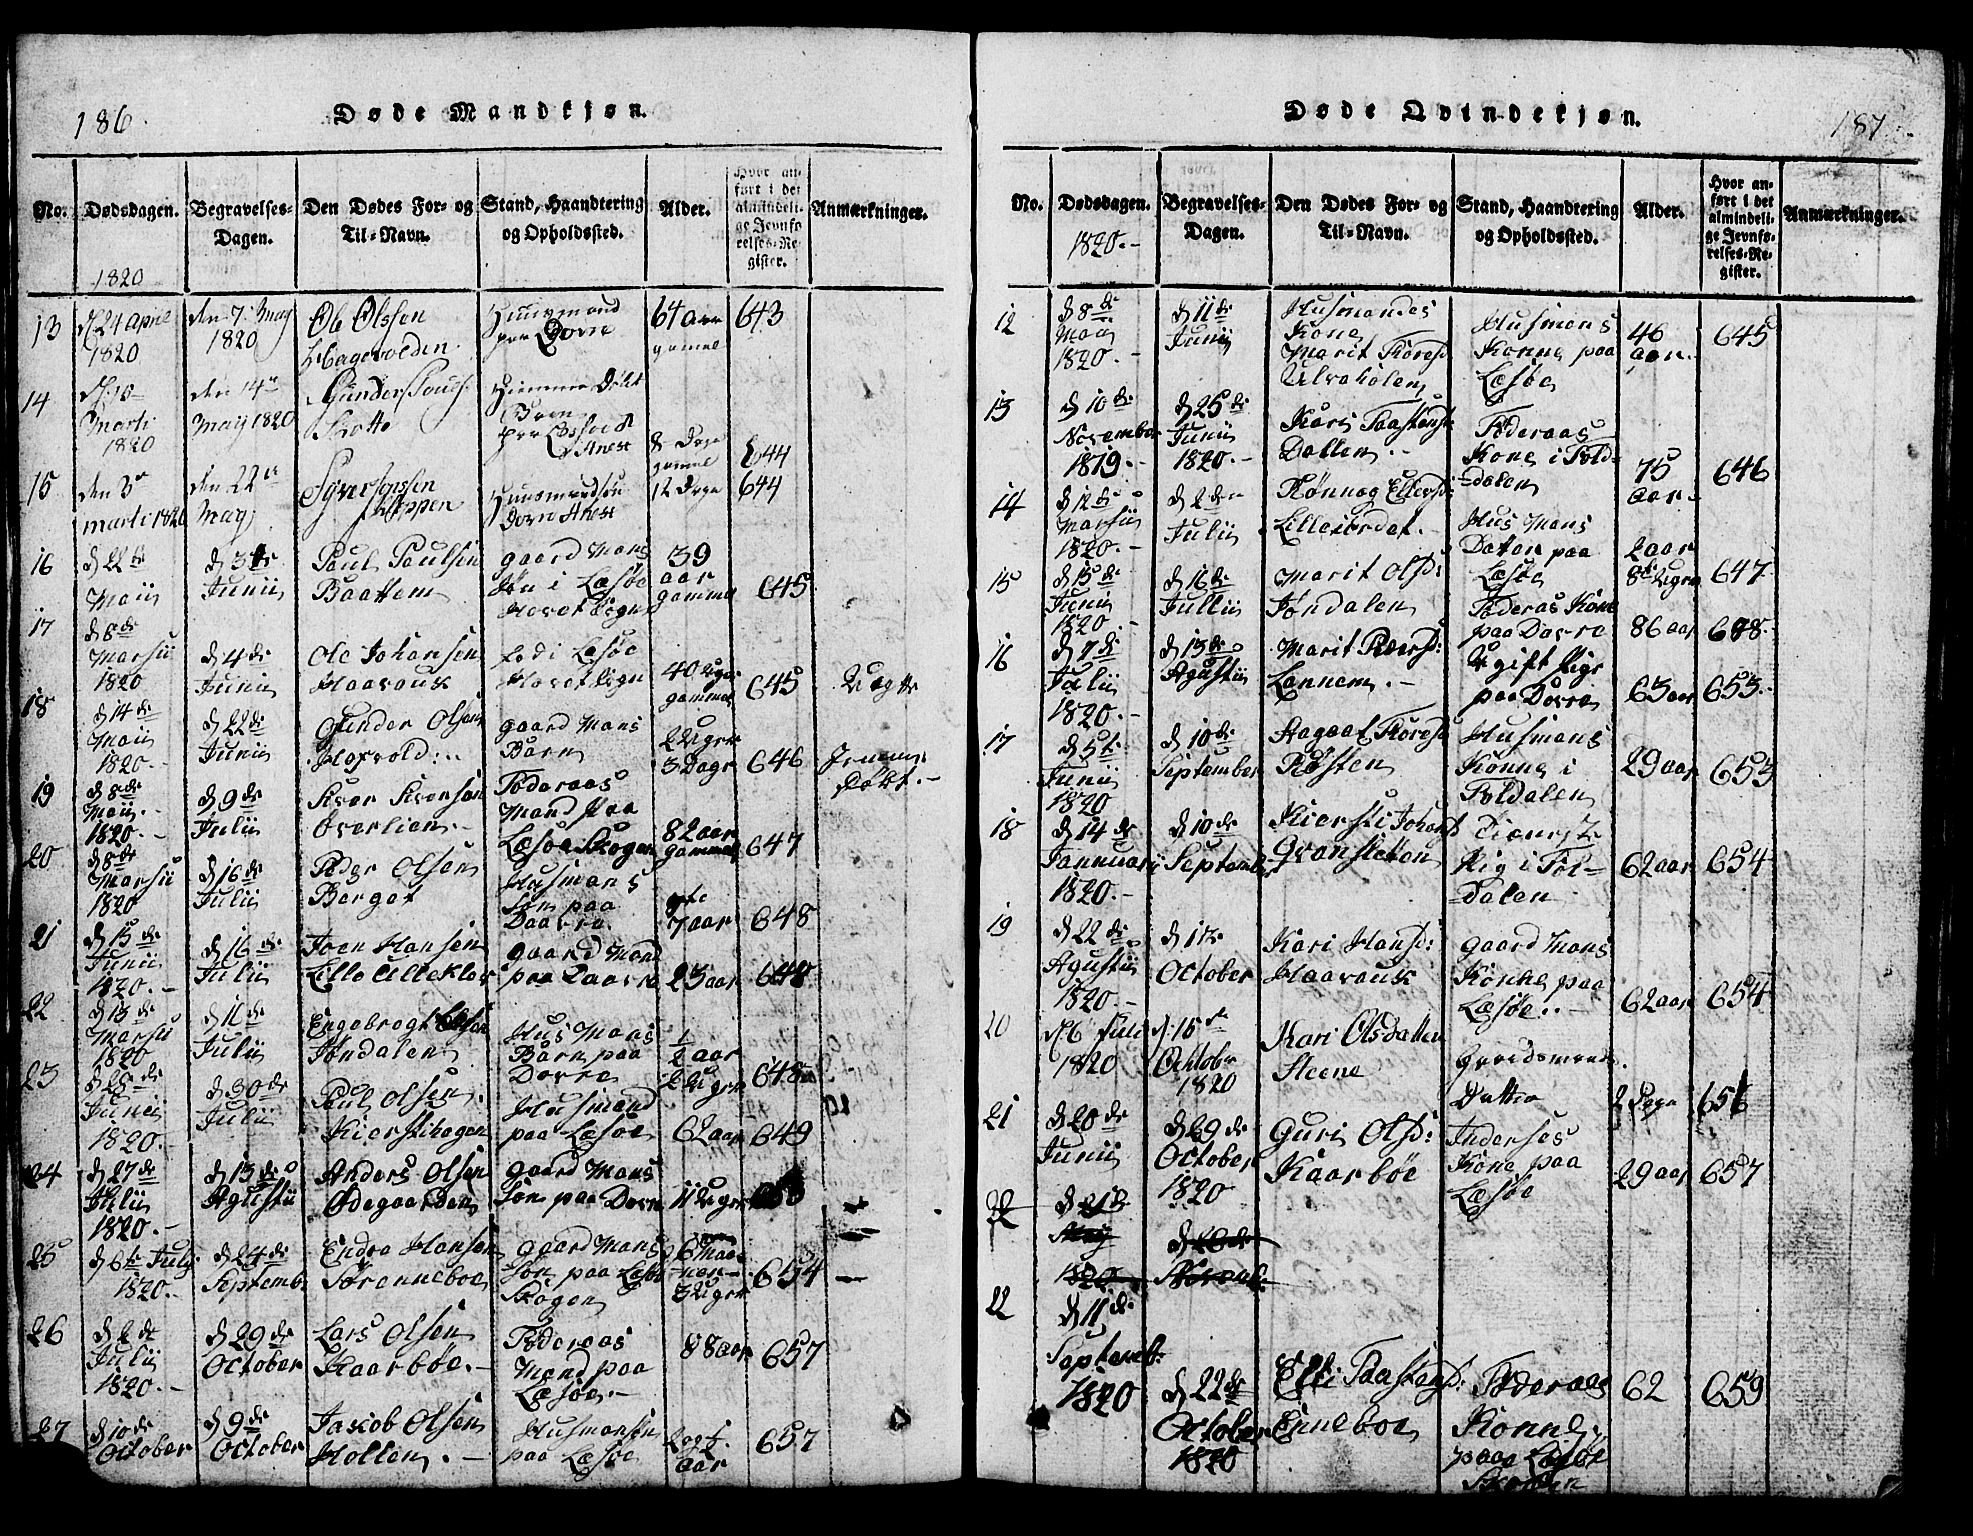 186.
Døde Mandkjøn.
No. Dødsdagen. Begravelses-Dagen. Den Dødes For- og Til-Navn. Stand, Haandtering og Opholdssted. Alder. Hvor anført i det almindelige Jevnførelses-Register. Anmærkninger.
1820
13 d. 24 April 1820 den 7. May 1820 Ole Olssen Hagevolden Huusmand paa Dovre 64 aar gamel 643
14 d. 10 Marti 1820 den 14de May 1820 Gunder Poulss: Skotte 8 Dage gamel 644
15 den 3de marti 1820 den 22de May Syver Huusmandsøn Dovre 12 Dage 644
16 d 22de Maii d 3de Junii Paul Paulsen Baattem gaard Mans Søn i Læsøe Hovet Sogn 39 aar gammel 645
17 d 8de Marsii 1820 d 4de Junii Ole Johansen Haavauk Læsøe Hovet Sogn 40 Uger gammel 645
18 d 14de Maii 1820.- d 22de Junii Gunder Olsen gaard Mans Barn 2 Uger 3 Dage 646 Døbt.-
19 d 8de Maii 1820.- d 9de Julii Iver Iversen Øverlien.- Føderaas Mand paa Læsøe Skogen 82 aar gammel 647
20 d 8de Marsii 1820 d 16de Julii Peder Olsen Berget Husmans Søn paa Daavre 7 aar 648
21 d 15de Junii 1820.- d 16de Julii Iver Hansen Lille Ulleklev gaard Mand paa Daavre 23 aar 648
22 d 13de Marsii 1820 d 16de Julii Engebregt Olsen Jøndalen Hus Mans Barn paa Dovre ½ aar 2 Uger 648
23 d 28de Junii 1820.- d 30de Julii Paul Olsen Kierstihagen Husmand paa Læsøe 62 aar 649
24 d 27de Julii 1820.- d 13de Agustii Anders Olsen Ødegaarden gaard Mans Søn paa Dovre 11 Uger
25 d 6te July 1820.- d 24de Septemb: Endre Hansen Sørenneboe gaard Mans Søn paa Læsøe Skogen 6 Maa-neer 3 Uger 654
26 d 2de Julii 1820.- d 29de October Lars Olsen Kaarbøe.- Føderaas Mand paa Læsøe.- 88 aar 657
27 d 10de October d 9de October Jacob Olsen Holten.- Husmansøn paa Læsøe aar 657
187.
Døde Qvindekjøn.
No. Dødsdagen. Begravelses-Dagen. Den Dødes For- og Til-Navn. Stand, Haandtering og Opholdssted. Alder. Hvor anført i det almindelige Jevnførelses-Register. Anmærkninger.
1820.-
12 d 8de Maii 1820.- d 11de Junii Husmandes Kone Marit Toresd Ulvahølen Husmans Konne paa Læsøe 46 aar.- 645
13 d 10de November 1819.- d 25de Junii 1820.- Kari Taastensd: Dallen.- Føderaas Kone i Fold-dalen 75 aar.- 646
14 d 12de Marsii 1820.- d 2de Julii Rønnog Ellevsd: Hus Mans Datter paa Læsøe 2 aar 8te Uger 647
15 d 15de Junii 1820.- d 16de Jullii Marit Olsd: Jøndalen Føderas Kone paa Dovre 86 aar 648.-
16 d 7de Julii 1820.- d 13de Agustii Marit Pedersd: Lannem.- Ugift Pige paa Dovre 63 aar 653.-
17 d 5te Junii 1820 d 10de September Aagaat Toresd Røsten Husmans Konne i Foldalen 29 aar 653
18 d 14de Januarii 1820.- d 10de September Kiersti Johansd Gransletten Pig i Fol-Dalen 62 aar 654
19 d 22de Agustii 1820.- d 1te October Kari Hansd: Haavauk gaard Mans Konne paa Læsøe.- 62 aar 654
20 d. 6 Juli 1820 d. 15de October 1820 Kari Olsdatter Steene Gaardmands Datter 2 Dage 656
21 d 20de Junii d 29de October 1820 Guri Olsd: Kaarbøe Inderses Kone paa Læsøe 29 aar 657
22 d 21de May 1820
22 d 11de Septemb: 1820 d 22de October 1820 Elli Taastensd: Enneboe Føderaas Konne paa Læsøe Skogen 62 659